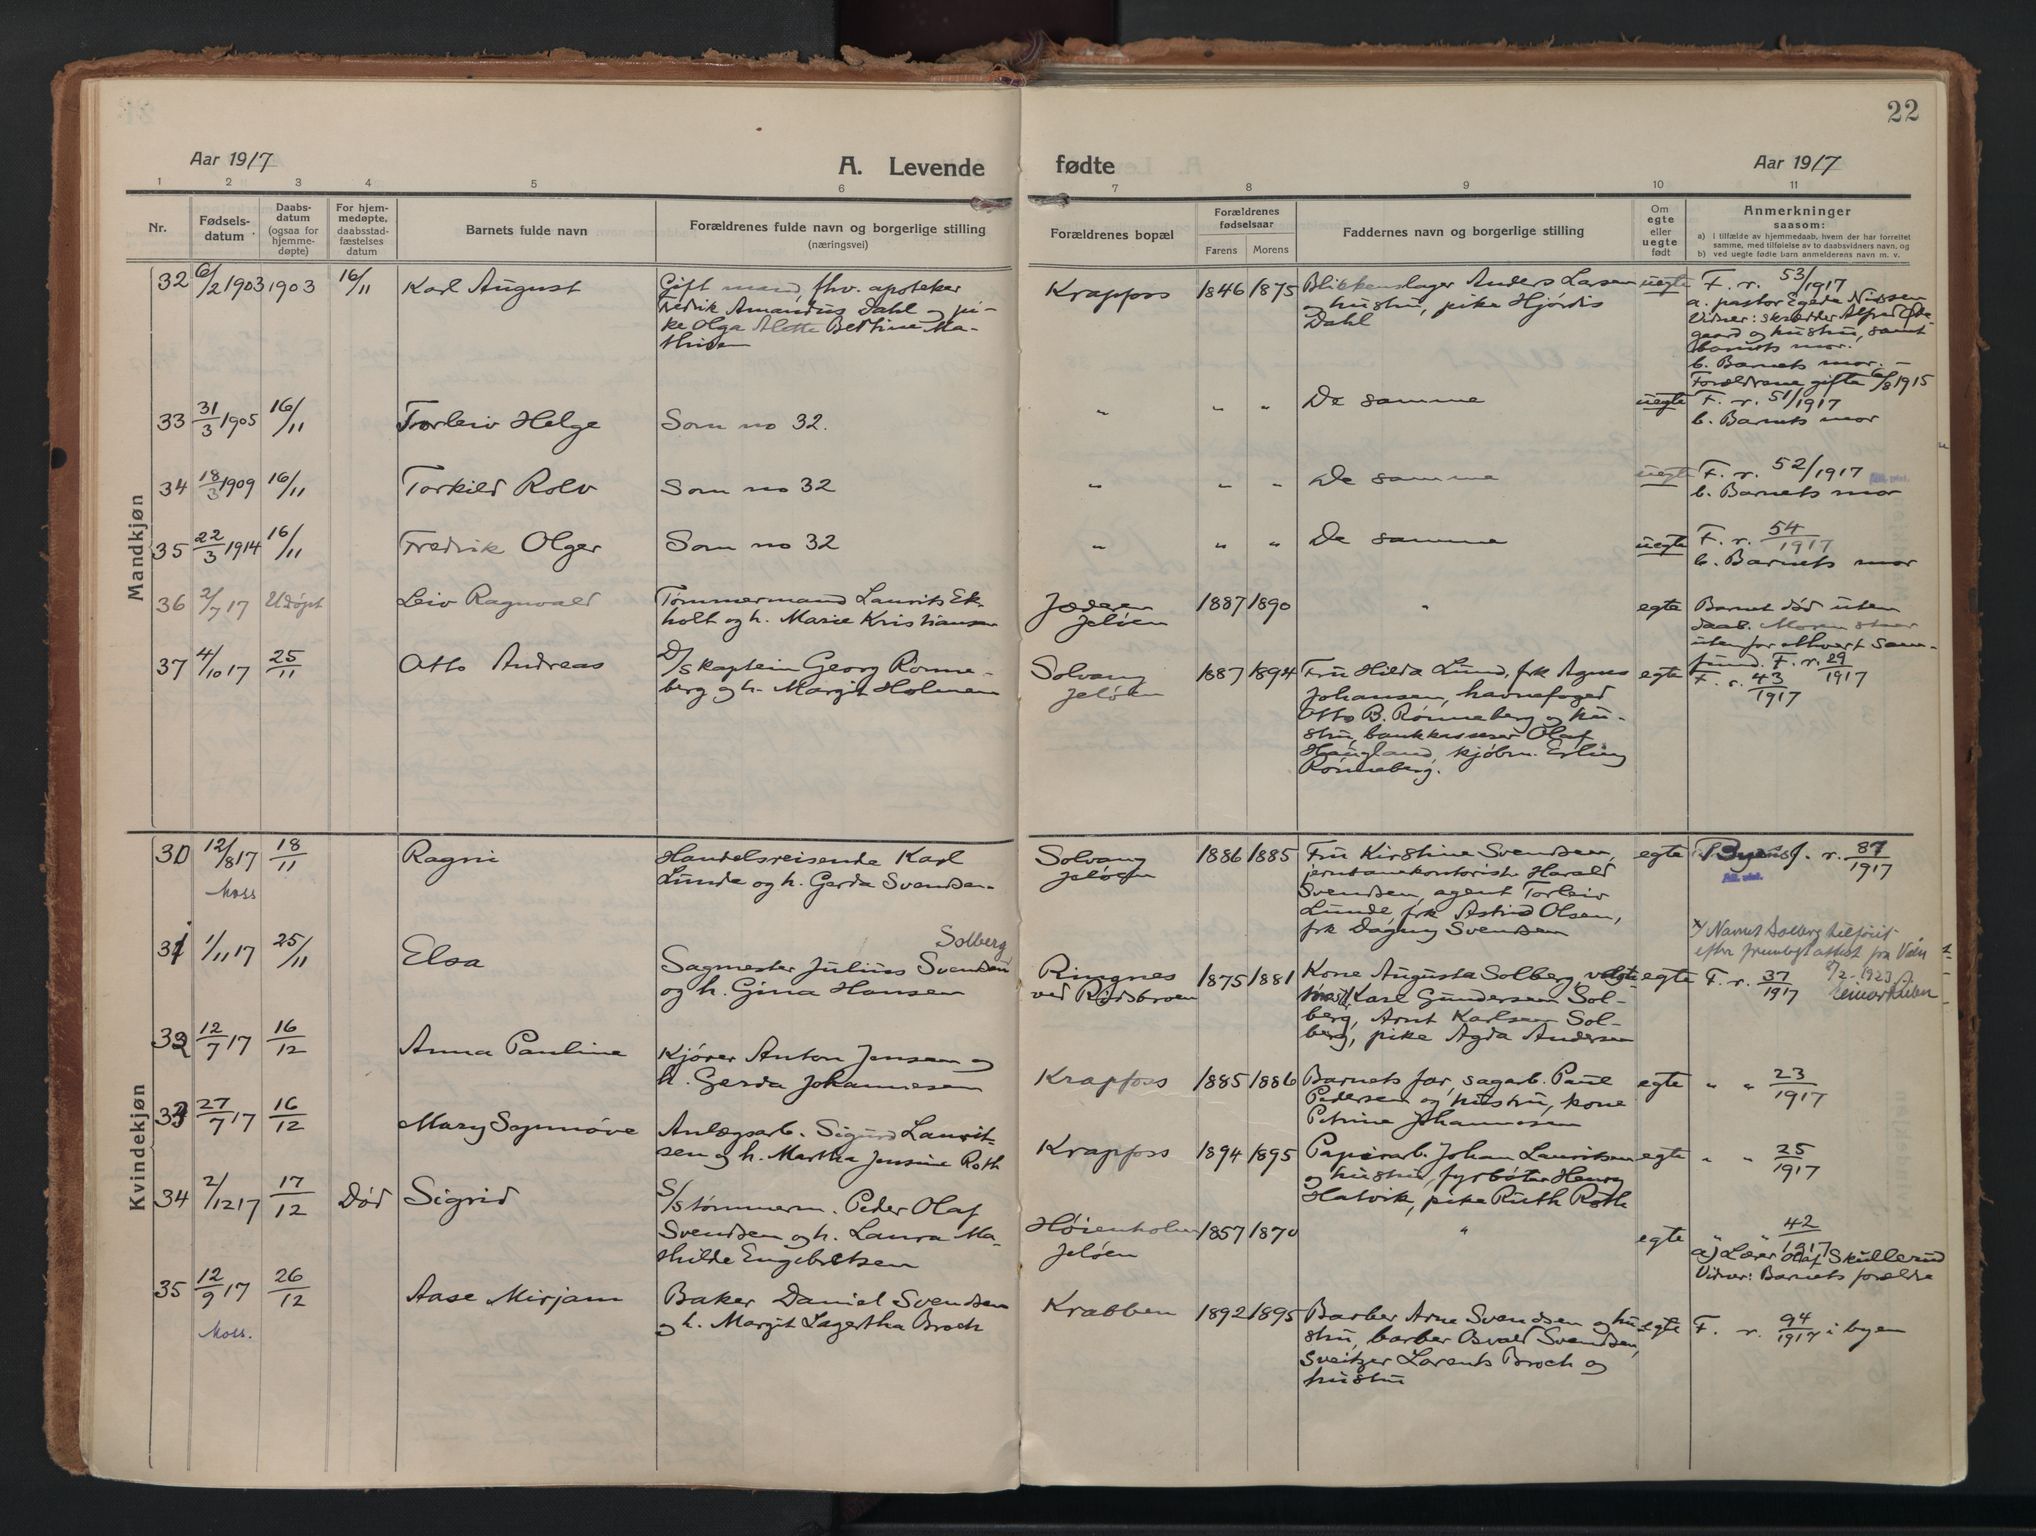 22
Aar 1917
A. Levende
fødte
Aar 1917
1 2 3 4 5 6 7 8 9 10 11
Nr.
Fødsels-
datum
Daabs-
datum
(ogsaa for
hjemme-
døpte)
For hjem-
medøpte,
daabsstad-
fæstelses
datum
Barnets fulde navn
Forældrenes fulde navn og borgerlige stilling
(næringsvei)
Forældrenes bopæl
Forældrenes
fødselsaar
Farens Morens
Faddernes navn og borgerlige stilling
Om
egte
eller
uegte
født
Anmerkninger
saasom:
a) i tilfælde av hjemmedaab, hvem der har forrettet
samme, med tilføielse av to daabsvidners navn, og
b) ved uegte fødte barn anmelderens navn m. v.
Mandkjøn
32 6/2 1903 1903 16/11 Karl August
Gift mand, fhv. apoteker
Fredrik Amandus Dahl og pi-
ke Olga Alette Bettine Ma-
thisen
Krapfoss 1846 1875
Blikkenslager Anders Larsen
og hustru, pike Hjørdis
Dahl
uegte
F. r. 53/1917
a. pastor Egede Nissen
Vidner: skrædder Alfred Øde-
gaard og hustru, samt
barnets mor.
b. Barnets mor. –
Forældrene gifte 6/8 1915
33 31/3 1905 16/11 Torleiv Helge Som no 32. " " " De samme uegte F. r. 51/1917
b. Barnets mor
34 18/3 1909 16/11 Torkild Rolv Som no 32 " " " De samme uegte F. r. 52/1917
b. Barnets mor
35 22/3 1914 16/11 Fredrik Olger Som no 32 " " " De samme uegte F. r. 54/1917
b. Barnets mor
36 2/7 17 Udøpt Leiv Ragnvald
Tømmermand Laurits Ek-
holt og h. Marie Kristiansen
Jæderen
Jeløen
1887 1890 " egte
Barnet død uten
daab. Moren staar
utenfor ethvert sam-
fund. F. r. 29/1917
37 4/10 17 25/11 Otto Andreas
D/S kaptein Georg Rønne-
berg og h. Margit Holmen
Solvang
Jeløen
1887 1894
Fru Hilda Lund, frk Agnes
Johansen, havnefoged
Otto B. Rønneberg og hu-
stru, bankkasserer Olaf
Haugland, kjøbm. Erling
Rønneberg.
egte F. r. 43/1917
Kvindekjøn
30 12/8 17 18/11 Ragni
Moss
Handelsreisende Karl
Lunde og h. Gerda Svendsen.
Solvang
Jeløen
1886 1885
Fru Kirstine Svendsen,
jernbanekontorist Harald
Svendsen, agent Torleiv
Lunde, frk Astrid Olsen,
frk Dagny Svendsen
egte Byens f. r. 87/1917
31 1/11 17 25/11 Elsa
Solberg
Sagmester Julius Svendsen
og h. Gina Hansen
Ringnes
ved Rødsbroen
1875 1881
Kone Augusta Solberg,
Karl Gundersen Sol-
berg, Arnt Karlsen Sol-
berg, pike Agda Andersen
egte F. r. 37/1917
x/ Navnet Solberg tilføiet
efter fremlagt attest fra
/2 - 1923
32 12/7 17 16/12 Anna Pauline
Kjører Anton Jensen og
h. Gerda Johannesen
Krapfoss 1885 1886
Barnets far, sagarb. Paul
Pedersen og hustru, kone
Petrine Johannesen
egte " " 23/1917
33 27/7 17 16/12 Mary Synnøve
Anlægsarb. Sigurd Laurit-
sen og h. Martha Jensine Roth
Krapfoss 1894 1895
Papirarb. Johan Lauritsen
og hustru, fyrbøter Henry
Hatvik, pike Ruth Roth
egte " " 25/1917
34 2/12 17 17/12 Død Sigrid
S/S tømmerm. Peder Olaf
Svendsen og h. Laura Ma-
thilde Engebretsen
Høienholm
Jeløen
1857 1870 " egte " " 42/1917
a) Lærer Olaf Skullerud
Vidner: Barnets forældre
35 12/9 17 26/12 Aase Mirjam
Moss.
Baker Daniel Svendsen
og h. Margit Lagertha Broch
Krabben 1892 1895
Barber Arne Svendsen og hu-
stru, barber Osvald Svendsen,
Sveitzer Lorents Broch og
hustru
egte F. r. 94/1917 i byen